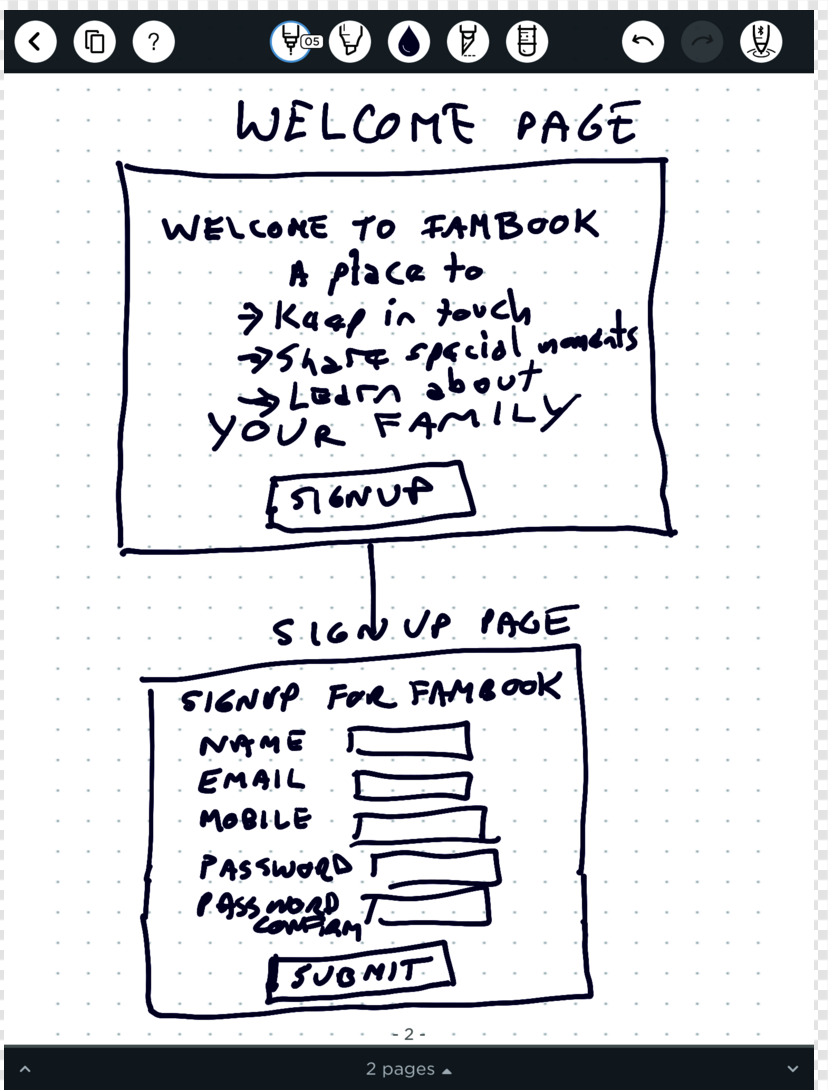 ?
05
WELCOME PAGE
WELCOME TO FAMBOOK
A place to
→ Keep in touch
→ Share special moments
→ Learn about
YOUR FAMILY
SIGNUP
SIGNUP PAGE
SIGNUP FOR FAMBOOK
NAME
EMAIL
MOBILE
PASSWORD
PASSWORD
CONFIRM
SUBMIT
- 2 -
2 pages